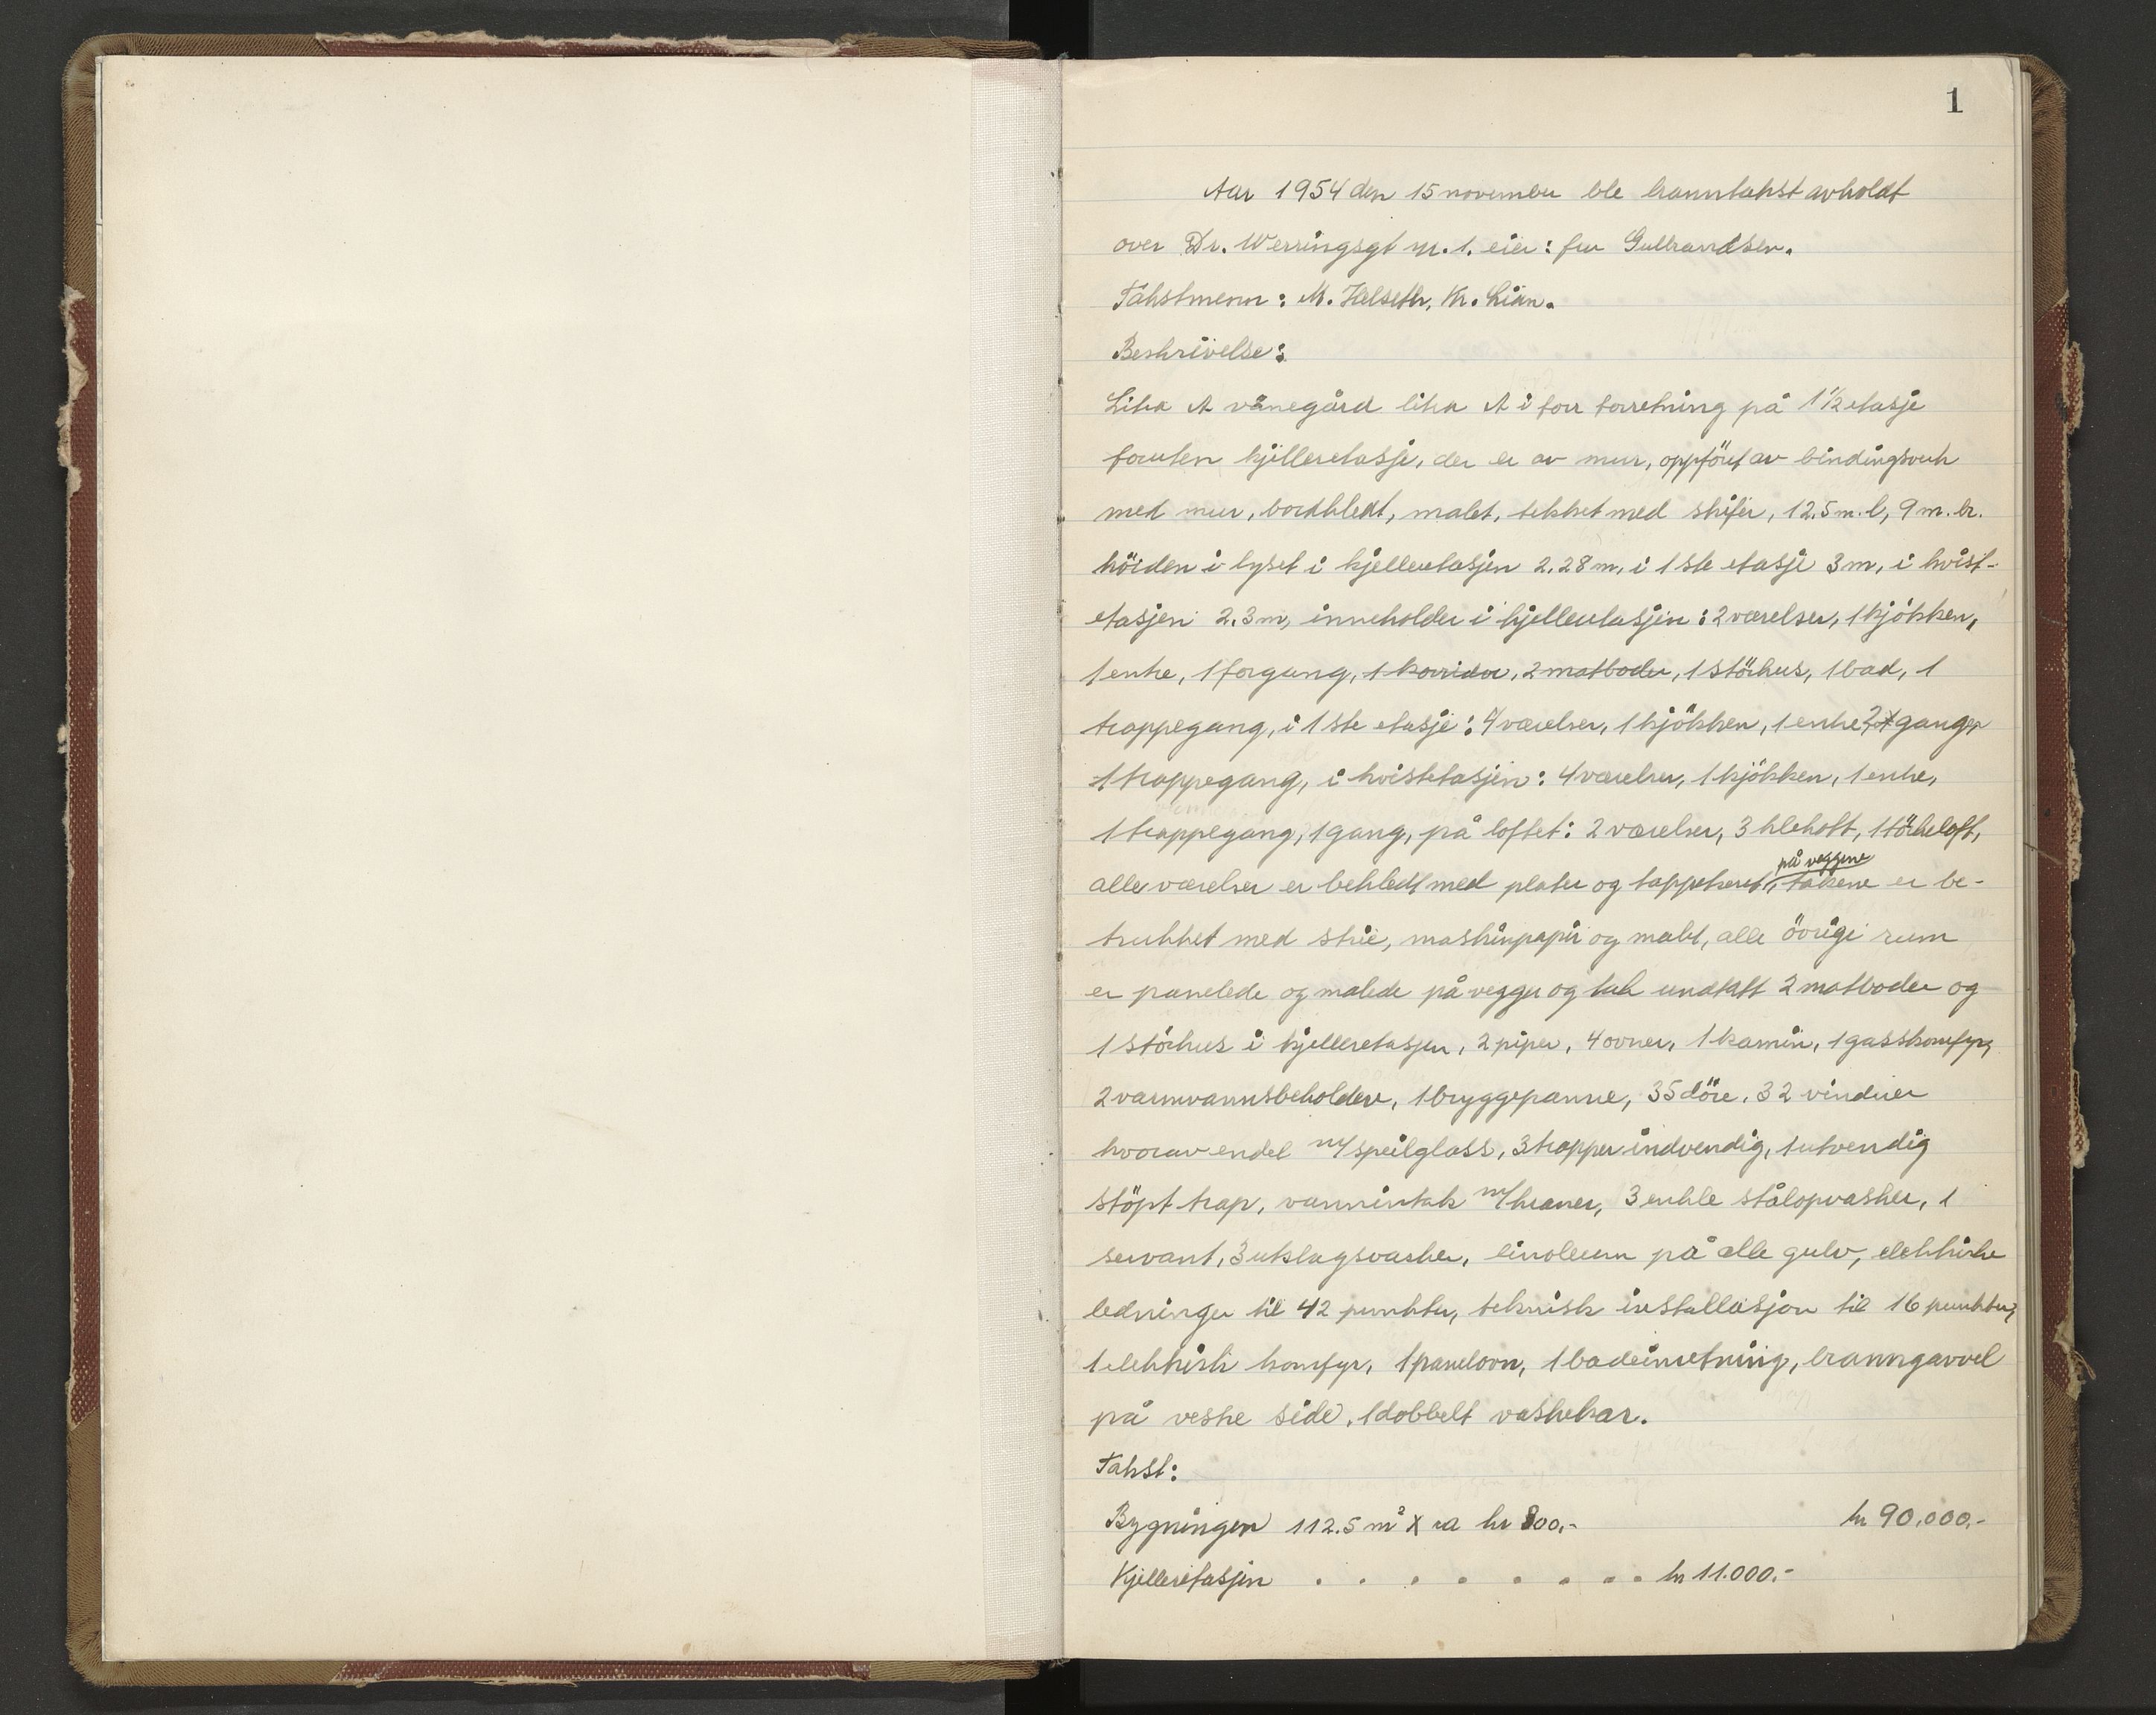 1
Aar 1954 den 15 november ble branntakst avholdt
over Dr. Werringsgt nr. 1. eier: fru Gulbrandsen.
Takstmenn: M. Helseth, Kr. Lian.
Beskrivelse:
Litra A vånegård litra A i forr forretning på 1½ etasje
foruten kjelleretasje, der er av mur, oppfört av bindingsverk
med mur, bordkledt, malet, tekket med skifer, 12.5 m. l, 9 m. br.
höiden i lyset i kjelleretasjen 2.28 m, i 1ste etasje 3 m, i kvist-
etasjen 2.3 m, inneholder i kjelleretasjen: 2 værelser, 1 kjökken,
1 entre, 1 forgang, 1 korridor, 2 matboder, 1 störhus, 1 bad, 1
trappegang, i 1ste etasje: 4 værelser, 1 kjökken, 1 entre, 2 ganger
1 trappegang, i kvistetasjen: 4 værelser, 1 kjökken, 1 entre,
1 trappegang, 1 gang, på loftet: 2 værelser, 3 klekott, 1 törkeloft,
på veggene
alle værelser er bekledt med plater og tappetseret, takene er be-
trukket med strie, maskinpapir og malet, alle övrige rum
er panelede og malede på vegger og tak undtatt 2 matboder og
1 störhus i kjelleretasjen, 2 piper, 4 ovner, 1 kamin, 1 gasskomfyr,
2 varmvannsbeholdere, 1 bryggepanne, 35 döre, 32 vinduer
hvorav endel m/ speilglass, 3 trapper indvendig, 1 utvendig
stöpt trap, vannintak m/ kraner, 3 enkle stålopvasker, 1
servant, 3 utslagsvasker, linoleum på alle gulv, elektriske
ledninger til 42 punkter, teknisk installasjon til 16 punkter,
1 elektrisk komfyr, 1 panelovn, 1 badeinretning, branngavvel
på vestre side, 1 dobbelt vaskekar.
Takst:
Bygningen 112.5 m² x a kr 800,- kr 90.000,-
Kjelleretasjen . . . . . . . . . kr 11.000.-